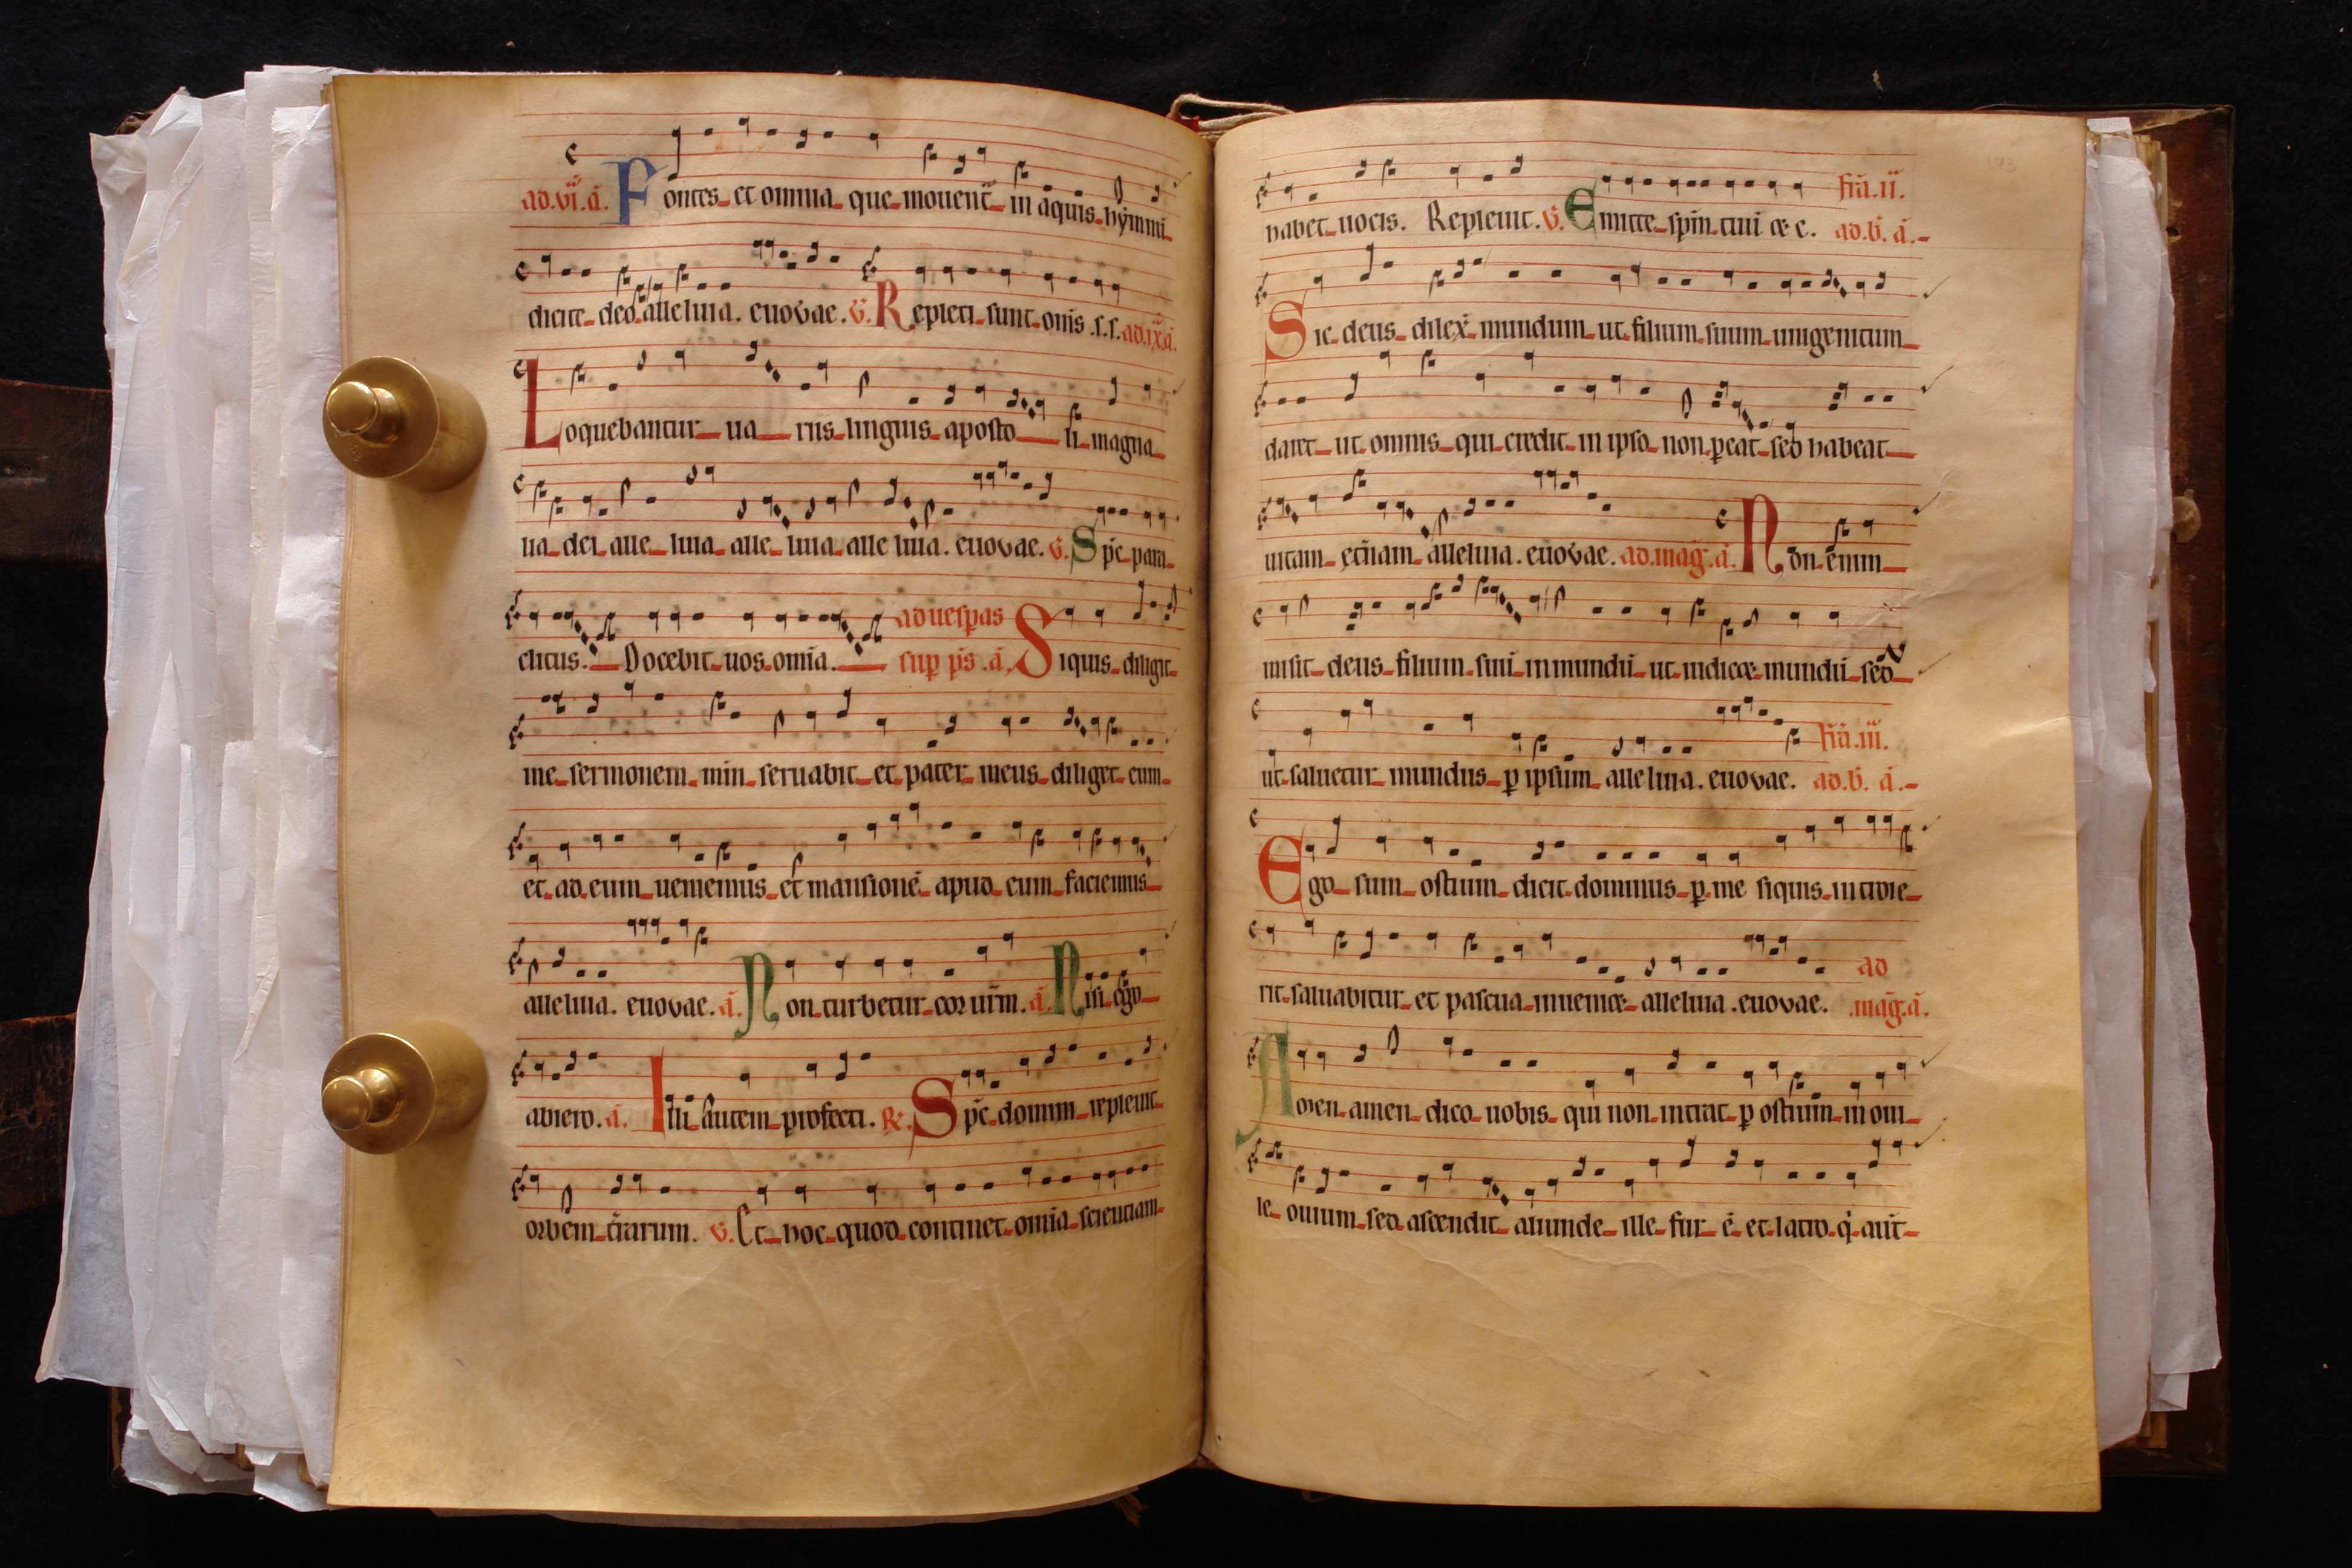 ad.vi.a. Fontes et omnia que mouent̄ in aquis hymni
dicite deo alleluia. euovae. v. Repleti sunt om̄s .s.s. ad.ix.a.
Loquebantur uariis linguis apostoli magna
lia dei alleluia alleluia alleluia. euovae. v. Sp̄c para
clitus. Docebit uos om̄ia. ad uesp̄as
sup̄ p̄s .a. Siquis diligit
me sermonem meū seruabit et pater meus diliget eum
et ad eum ueniemus et mansionē apud eum faciemus
alleluia. euovae. a. Non turbetur cor ur̄m. a. Nisi ego
abiero. a. Illi autem profecti. R. Sp̄c domini repleuit
orbem tr̄arum. v. Et hoc quod continet om̄ia scientiam
habet uocis. Repleuit. v. Emitte sp̄m tuū & c. fr̄ia.ii. ad.b. a.
Sic deus dilex̄ mundum ut filium suum unigenitum
daret ut omnis qui credit in ipso non p̄eat sed habeat
uitam et̄nam alleluia. euovae. ad.mag̃.a. Non enim
misit deus filium suū in mundū ut iudicet mundū sed
ut saluetur mundus p̄ ipsum alleluia. euovae. fr̄ia.iii. ad.b. a.
Ego sum ostium dicit dominus p̄ me siquis introie
rit saluabitur et pascua inueniet alleluia. euovae. ad .mag̃.a.
Amen amen dico uobis qui non intrat p̄ ostium in oui
le ouium sed ascendit aliunde ille fur ē et latro. q̄ aut̄